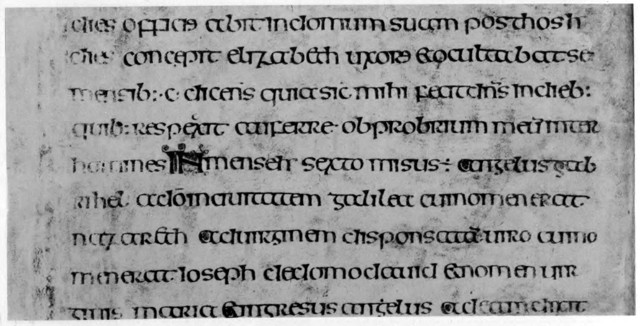 dies officiẽ abit in domum suam post hos h
dies concepit elizabeth uxore & ocultabat se
mensib: c dicens quia sic mihi fecit dn̄s in dieb:
quib: respexit auferre obprobrium meū inter
homines IN mense h sexto misus ÷ angelus gab
rihel a dō in ciuitatem galilea cui nomen erat
nazareth ad uirginem disponsatā uiro cui no
men erat ioseph de domo dauid & nomen uir
ginis maria & ingresus angelus ad eam dixit